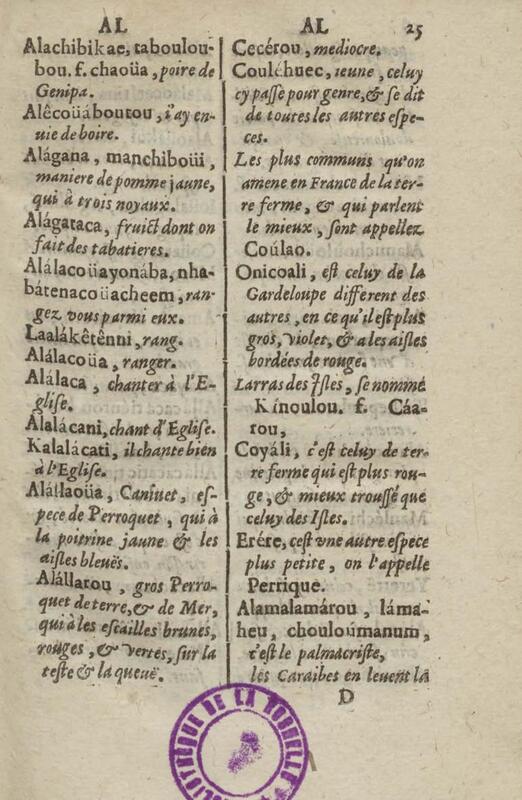 AL
Alachibikae, taboulou-
bou. f. chaoüa, poire de
Genipa.
Alêcoüáboutou, i'ay en-
uie de boire.
Alágana, manchiboüi,
maniere de pomme jaune,
qui à trois noyaux.
Alágataca, fruict dont on
fait des tabatieres.
Alálacoüayonába, nha-
bátenacoüacheem, ran-
gez vous parmi eux.
Laalákêtênni, rang.
Alálacoüa, ranger.
Alálaca, chanter à l'E-
glise.
Alalácani, chant d'Eglise.
Kalalácati, il chante bien
à l'Eglise.
Alállaoüa, Caniuet, es-
pece de Perroquet, qui à
la poitrine jaune & les
aisles bleuës.
Alállarou, gros Perro-
quet de terre, & de Mer,
qui à les escailles brunes,
rouges, & vertes, sur la
teste & la queuë.
AL 25
Cecérou, mediocre.
Couléhuec, ieune, celuy
cy passe pour genre, & se dit
de toutes les autres espe-
ces.
Les plus communs qu'on
amene en France de la ter-
re ferme, & qui parlent
le mieux, sont appellez
Coúlao.
Onicoali, est celuy de la
Gardeloupe different des
autres, en ce qu'il est plus
gros, violet, & a les aisles
bordées de rouge.
Larras des Isles, se nommé
Kínoulou. f. Cáa-
rou,
Coyáli, c'est celuy de ter-
re ferme qui est plus rou-
ge, & mieux troussé que
celuy des Isles.
Erére, cest vne autre espece
plus petite, on l'appelle
Perrique.
Alamalamárou, láma-
heu, chouloúmanum,
c'est le palmacriste,
les Caraibes en leuent la
D
BIBLIOTHÈQUE DE LA ROCHELLE